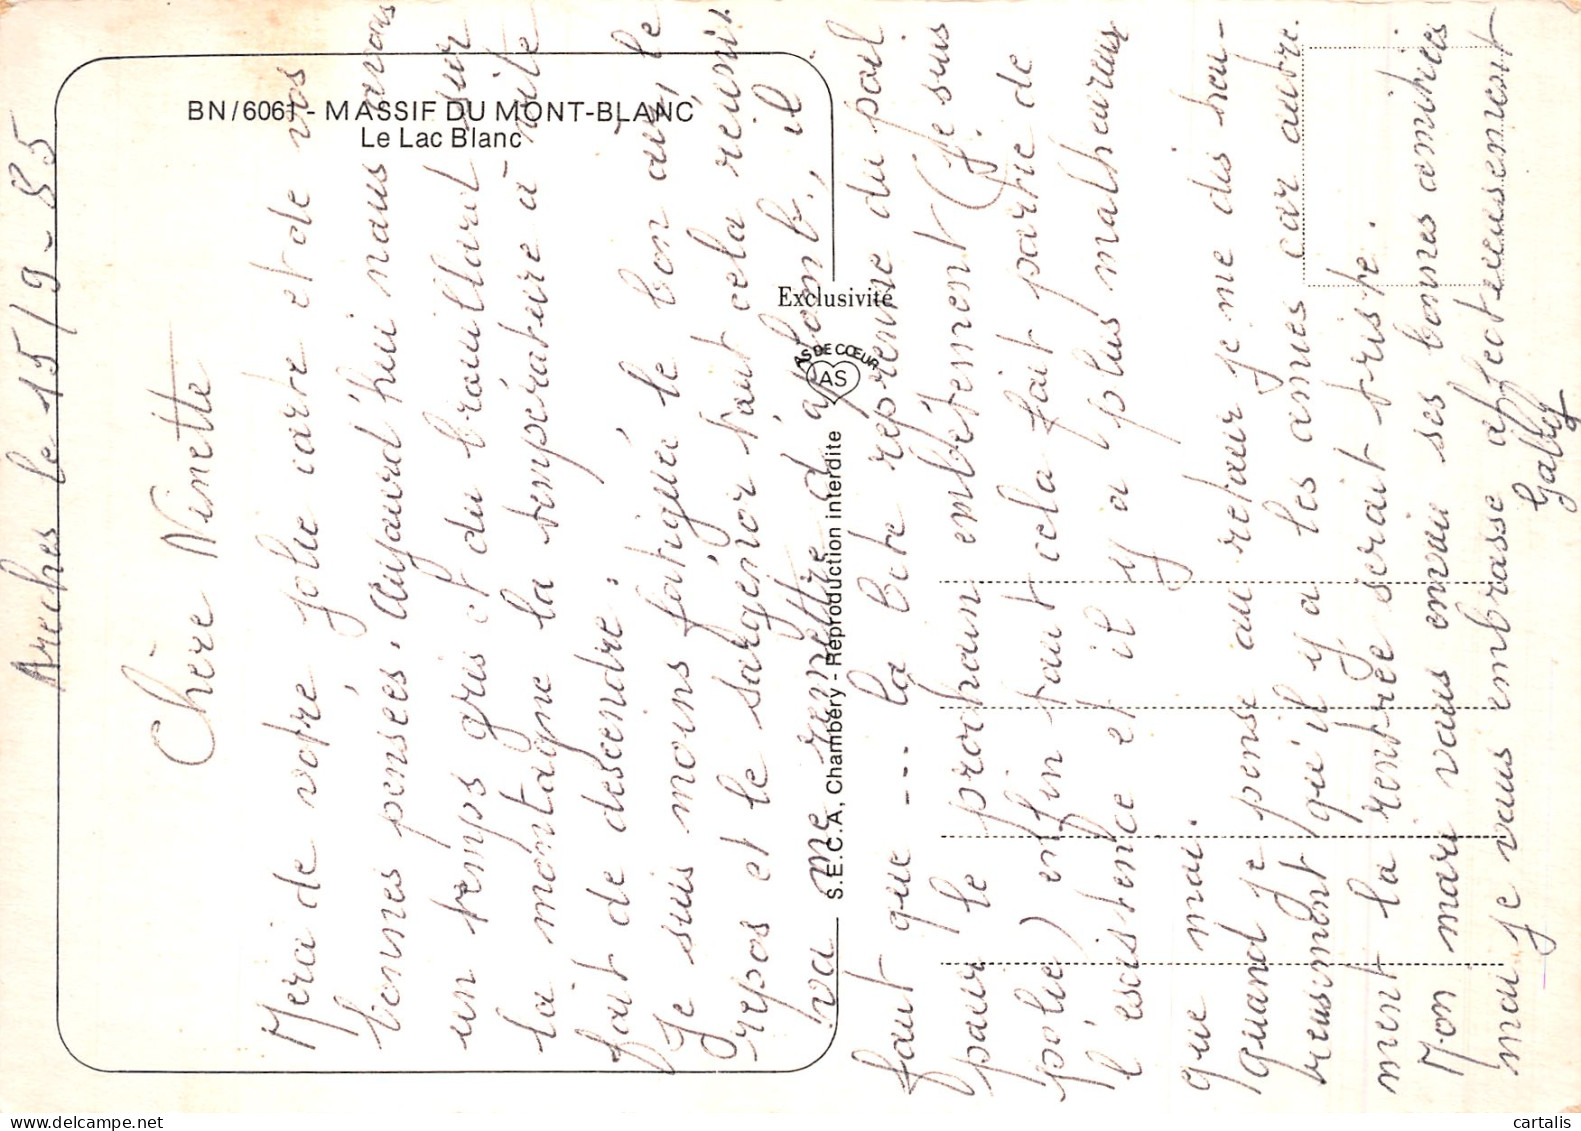 BN/6061 - MASSIF DU MONT-BLANC
Le Lac Blanc
Exclusivité
AS DE CŒUR
AS
S.E.C.A, Chambéry - Reproduction interdite
Areches le 15/9-85
Chère Ninette
Merci de votre jolie carte et de vos
bonnes pensées. Aujourd'hui nous avons
un temps gris et du brouillard sur
la montagne la température à vite
fait de descendre.
Je suis moins fatiguée le bon air, le
repos et le Sargénor tout cela réuni.
va me remettre d'aplomb., il
faut que --- la bête reprenne du poil
pour le prochain embêtement (je suis
polie) enfin tout cela fait partie de
l'existence et il y a plus malheureux
que moi.
Quand je pense au retour je me dis heu-
reusement qu'il y a les amies car autre
ment la rentrée serait triste.
Mon mari vous envoie ses bonnes amitiées
moi je vous embrasse affectueusement
Gaby
cartalis
www.delcampe.net